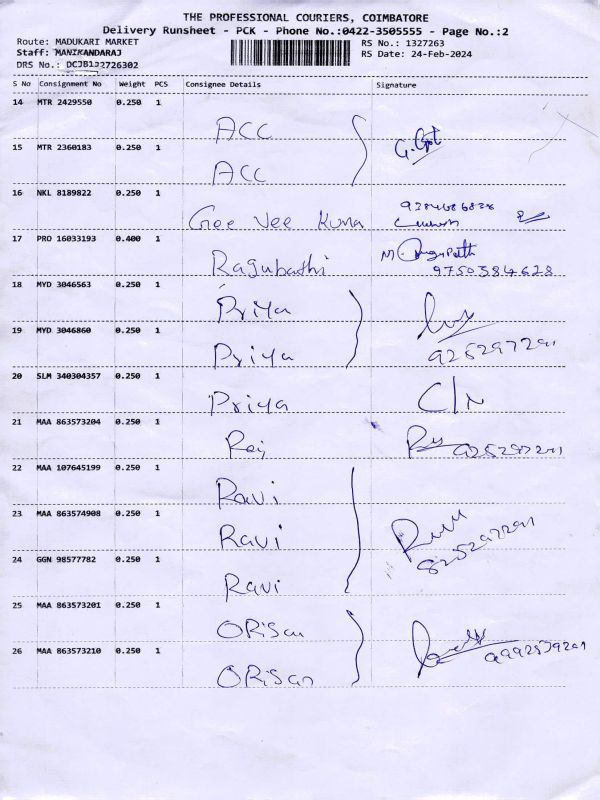 THE PROFESSIONAL COURIERS, COIMBATORE
Delivery Runsheet - PCK - Phone No.:0422-3505555 - Page No.:2
Route: MADUKARI MARKET RS No.: 1327263
Staff: MANIKANDARAJ RS Date: 24-Feb-2024
DRS No.:
S No Consignment No Weight PCS Consignee Details Signature
14 MTR 2429550 0.250 1 ACC
15 MTR 2360183 0.250 1 ACC
16 NKL 8189822 0.250 1 Gee Vee Kuma
17 PRO 16033193 0.400 1 Ragubathi 9750384628
18 MYD 3046563 0.250 1 Priya
19 MYD 3046860 0.250 1 Priya
20 SLM 340304357 0.250 1 Priya C/N
21 MAA 863573204 0.250 1 Raj
22 MAA 107645199 0.250 1 Ravi
23 MAA 863574908 0.250 1 Ravi
24 GGN 98577782 0.250 1 Ravi
25 MAA 863573201 0.250 1 ORisan
26 MAA 863573210 0.250 1 ORisan